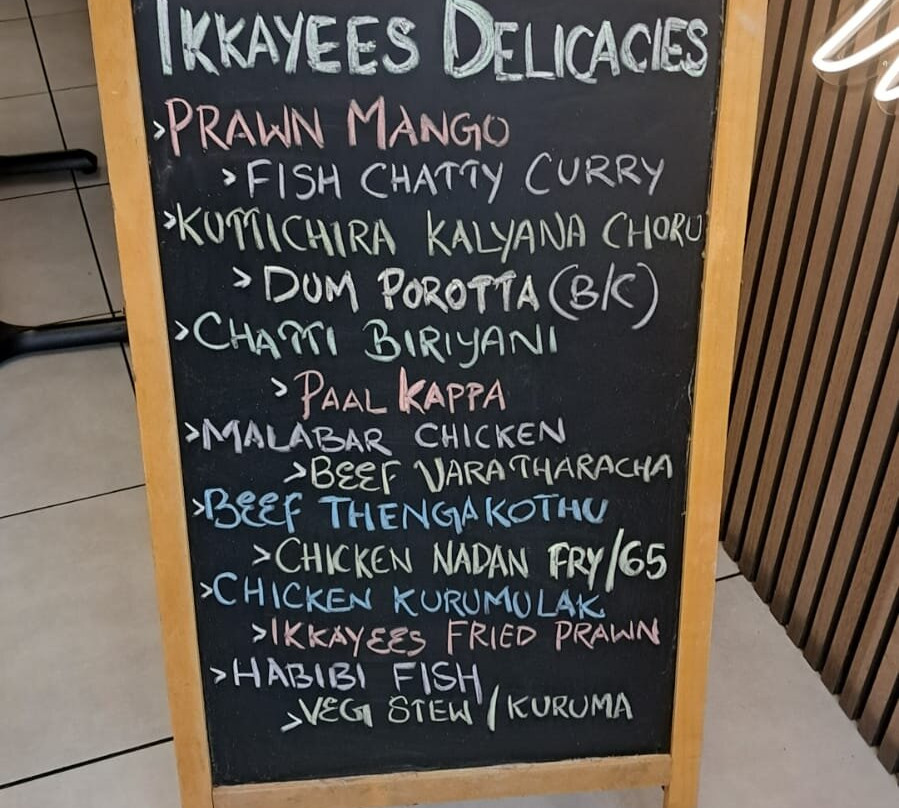 IKKAYEES DELICACIES
>PRAWN MANGO
>FISH CHATTY CURRY
>KUTTICHIRA KALYANA CHORU
>DUM POROTTA (B/C)
>CHATTI BIRIYANI
>PAAL KAPPA
>MALABAR CHICKEN
>BEEF VARATHARACHA
>BEEF THENGAKOTHU
>CHICKEN NADAN FRY/65
>CHICKEN KURUMULAK
>IKKAYEES FRIED PRAWN
>HABIBI FISH
>VEG STEW/KURUMA